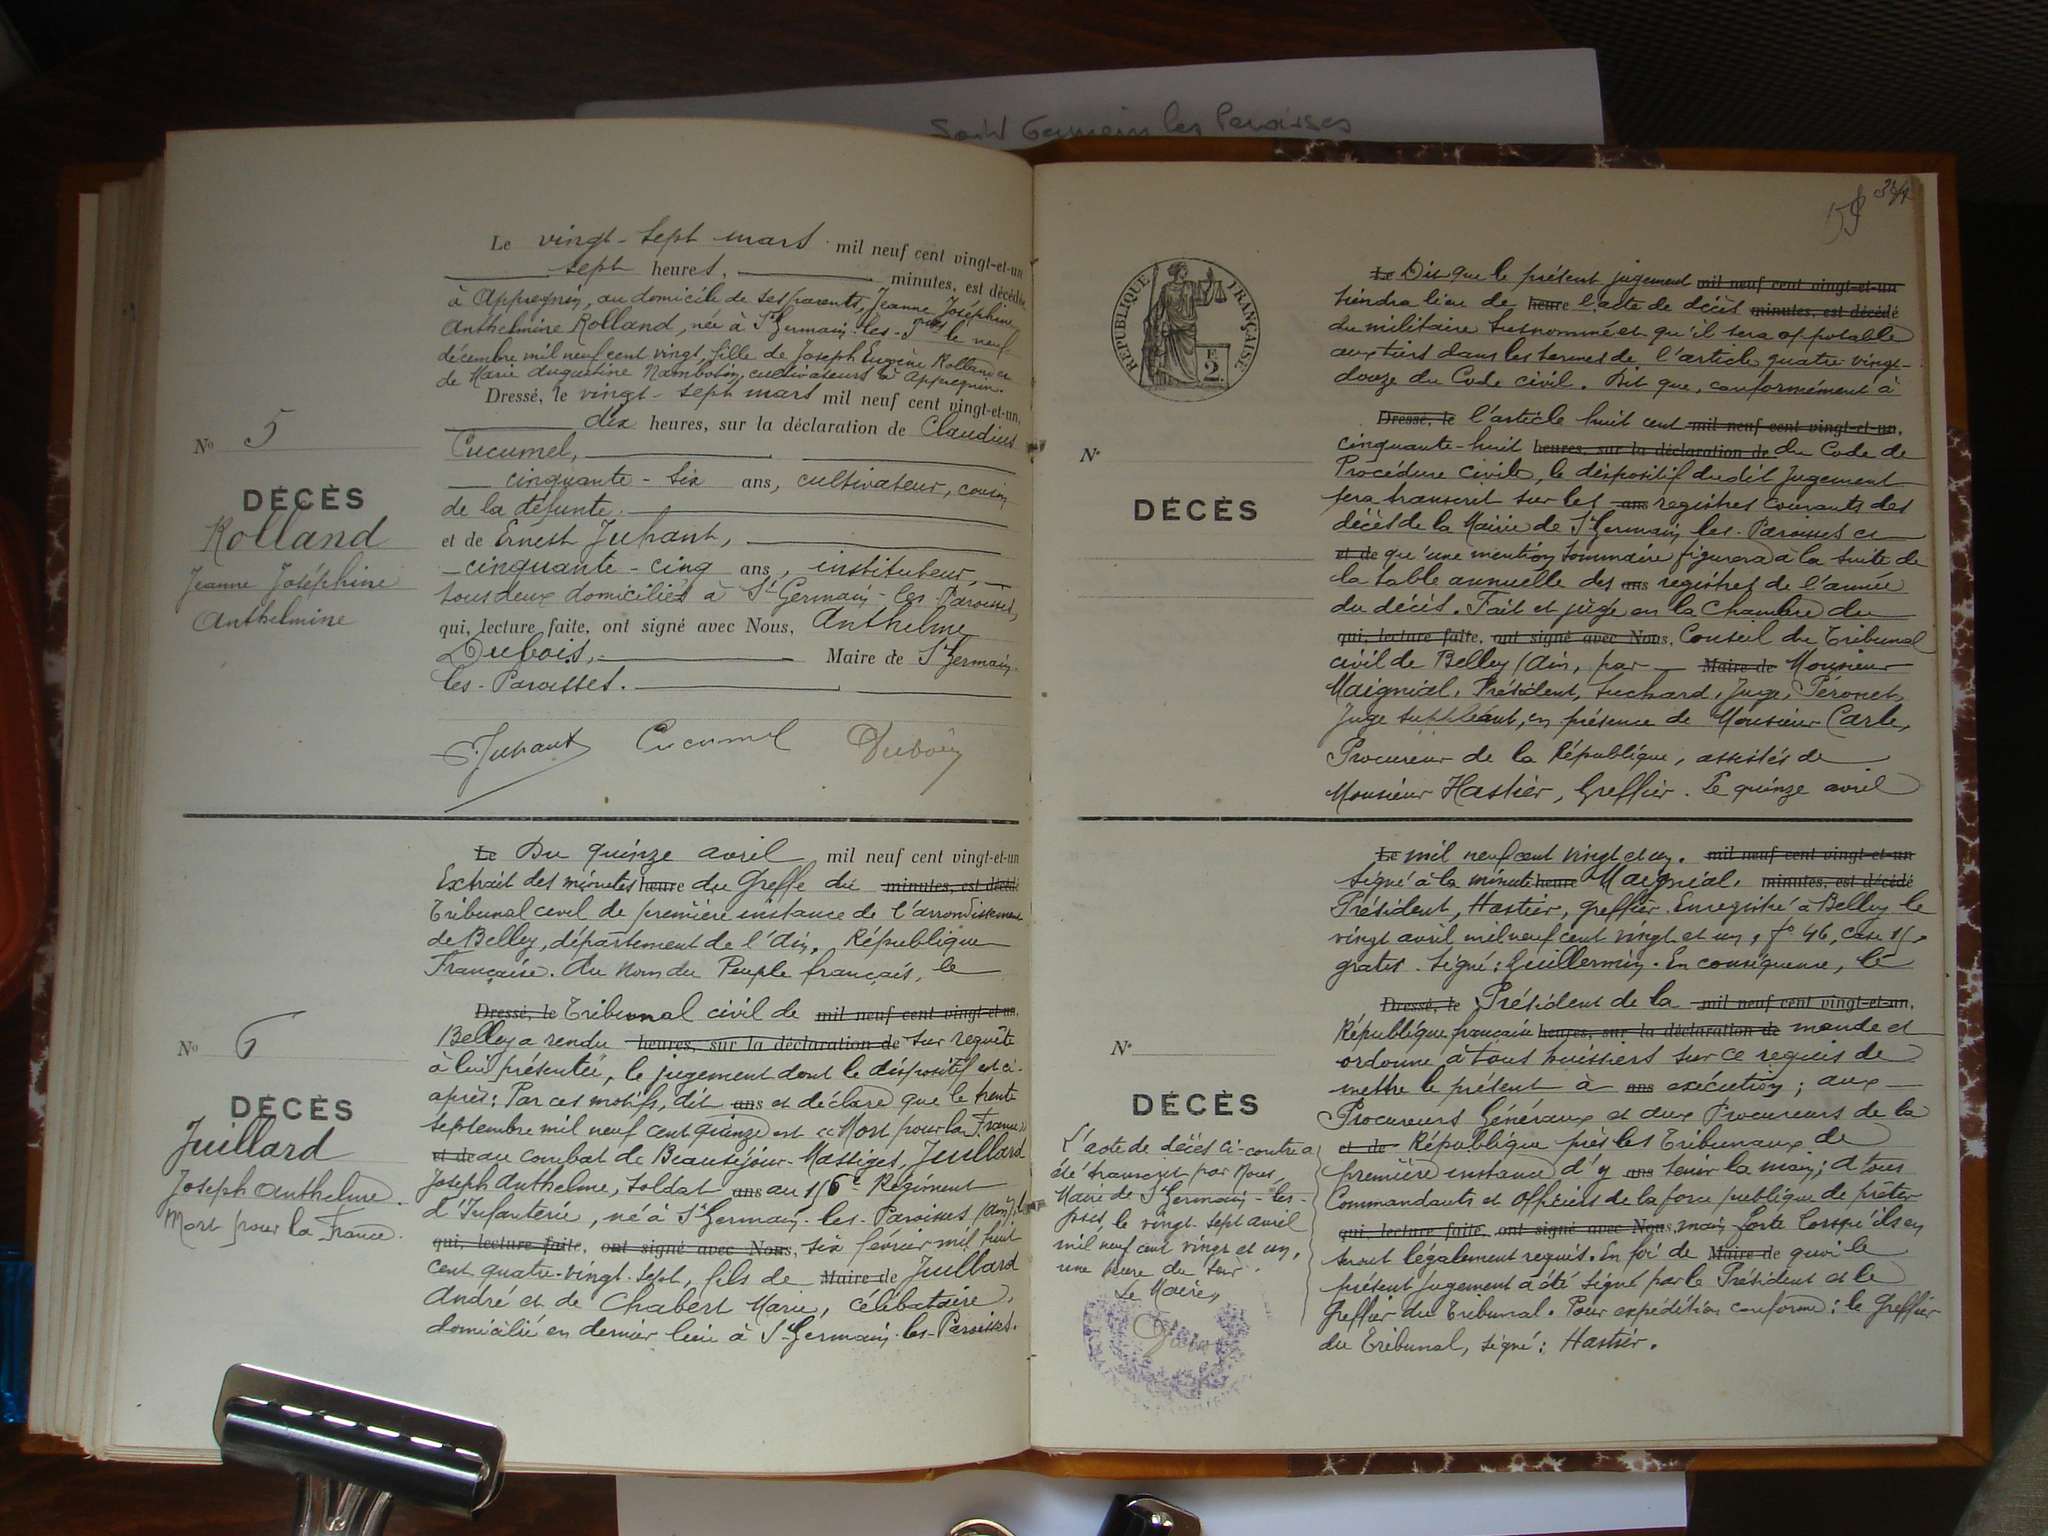 Saint Germain les Paroisses
Le vingt-sept mars mil neuf cent vingt-et-un
sept heures, minutes, est décédée
à Appregnin, au domicile de ses parents, Jeanne Joséphine
Anthelmine Rolland, née à St Germain-les-Pses le neuf
décembre mil neuf cent vingt, fille de Joseph Eugène Rolland et
de Marie Augustine Nambotin, cultivateurs à Appregnin.
Dressé, le vingt-sept mars mil neuf cent vingt-et-un,
dix heures, sur la déclaration de Claudius
Cucumel,
cinquante-six ans, cultivateur, cousin
de la défunte.
et de Ernest Juhant,
cinquante-cinq ans, instituteur,
tous deux domiciliés à St Germain-les-Paroisses,
qui, lecture faite, ont signé avec Nous, Anthelme
Dubois, Maire de St Germain-
les-Paroisses.
Juhant Cucumel Dubois
No 5
DÉCÈS
Rolland
Jeanne Joséphine
Anthelmine
Le Du quinze avril mil neuf cent vingt-et-un
Extrait des minutes heure du Greffe du minutes, est décédé
Tribunal civil de première instance de l'arrondissement
de Belley, département de l'Ain. République
Française. Au Nom du Peuple français, le
Dressé, le Tribunal civil de mil neuf cent vingt-et-un,
Belley a rendu heures, sur la déclaration de sur requête
à lui présentée, le jugement dont le dispositif est ci-
après: Par ces motifs, dit ans et déclare que le trente
septembre mil neuf cent quinze est "Mort pour la France"
et de au combat de Beauséjour-Massiges, Juillard
Joseph Anthelme, soldat ans au Régiment
d'Infanterie, né à St Germain-les-Paroisses (Ain) le
qui, lecture faite, ont signé avec Nous, six février mil huit
cent quatre-vingt-sept, fils de Maire de Juillard
André et de Chabert Marie, célibataire,
domicilié en dernier lieu à St Germain-les-Paroisses.
No 6
DÉCÈS
Juillard
Joseph Anthelme.
Mort pour la France.
RÉPUBLIQUE FRANÇAISE
E
2
Le Dit que le présent jugement mil neuf cent vingt-et-un
tiendra lieu de heure l'acte de décès minutes, est décédé
du militaire susnommé et qu'il sera opposable
aux tiers dans les termes de l'article quatre-vingt-
douze du Code civil. Dit que, conformément à
Dressé, le l'article huit cent mil neuf cent vingt-et-un,
cinquante-huit heures, sur la déclaration de du Code de
Procédure Civile, le dispositif dudit Jugement
sera transcrit sur les ans registres courants des
décès de la Mairie de St Germain-les-Paroisses et
et de qu'une mention sommaire figurera à la suite de
la table annuelle des ans registres de l'année
du décès. Fait et jugé en la Chambre du
qui, lecture faite, ont signé avec Nous, Conseil du Tribunal
civil de Belley (Ain, par Maire de Monsieur
Maignial, Président, Suchard, Juge, Péronet,
Juge suppléant, en présence de Monsieur Carle,
Procureur de la République, assistés de
Monsieur Hastier, Greffier. Le quinze avril
No
DÉCÈS
Le mil neuf cent vingt et un. mil neuf cent vingt-et-un
Signé à la minute heure Maignial, minutes, est décédé
Président, Hastier, greffier. Enregistré à Belley le
vingt avril mil neuf cent vingt et un, fo 46, case
gratis. Signé: Guillermin. En conséquence, le
Dressé, le Président de la mil neuf cent vingt-et-un,
République française heures, sur la déclaration de mande et
ordonne à tous huissiers sur ce requis de
mettre le présent à ans exécution; aux
Procureurs Généraux et aux Procureurs de la
et de République près les Tribunaux de
première instance d'y ans tenir la main; à tous
Commandants et Officiers de la force publique de prêter
qui, lecture faite, ont signé avec Nous, main forte lorsqu'ils en
seront légalement requis. En foi de Maire de quoi le
présent jugement a été signé par le Président et le
Greffier du Tribunal. Pour expédition conforme: le Greffier
du Tribunal, signé: Hastier.
No
DÉCÈS
L'acte de décès ci-contre a
été transcrit par Nous,
Maire de St Germain-les-
Pses, le vingt-sept avril
mil neuf cent vingt et un,
une heure du soir.
Le Maire,
Dubois